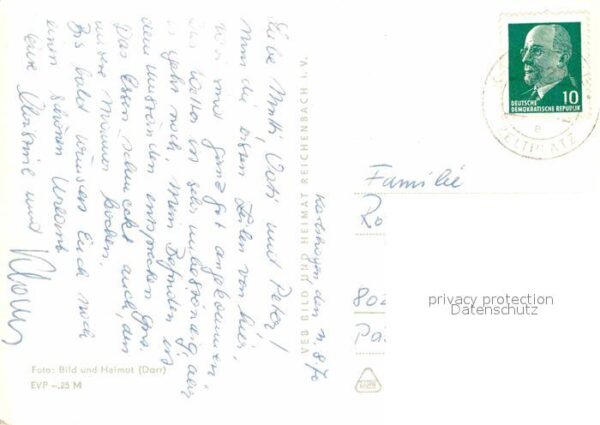 Karlshagen, den 3.8.70
Liebe Mutti, Vati und Peter!
Nun die ersten Zeilen von hier,
wir sind ganz gut angekommen.
Das Wetter ist sehr unbeständig, aber
es geht noch. Mein Befinden ist
den Umständen entsprechend gut.
Das Essen schmeckt auch, den
unsere Männer kochen.
Bis bald wünschen Euch noch
einen schönen Urlaub
eure
und
Klaus
VEB BILD UND HEIMAT REICHENBACH i. V.
Foto: Bild und Heimat (Darr)
EVP –.25 M
DEUTSCHE
DEMOKRATISCHE REPUBLIK
10
ZELTPLATZ
e
Familie
Ro
802
privacy protection
Datenschutz